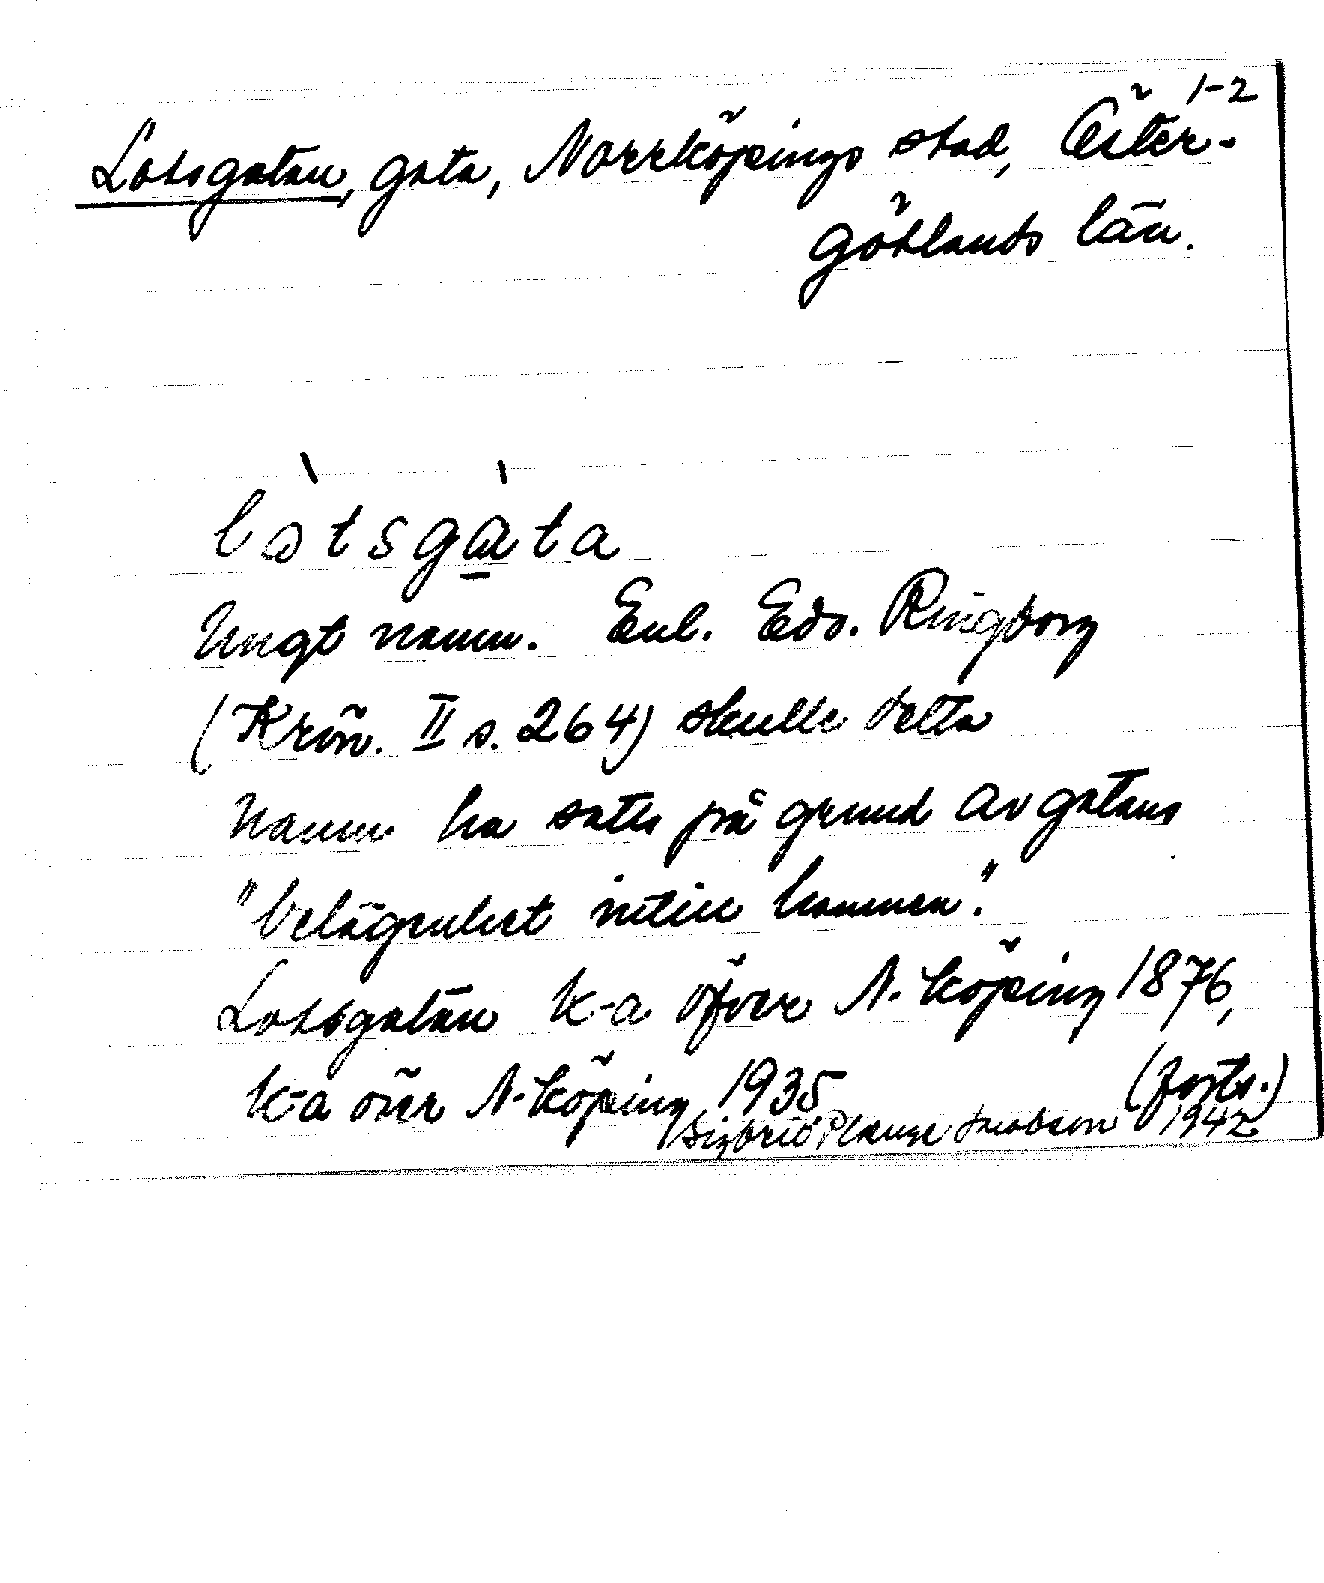 1-2
Lotsgatan, gata, Norrköpings stad, Öster-
götlands län.
lòtsgàta
Ungt namn. Enl. Edv. Ringborg
(Krön. II s. 264) skulle detta
namn ha satts på grund av gatans
"belägenhet intill hamnen".
Lotsgatan K-a öfver N-köping 1876,
K-a över N-köping 1935 (forts.)
Sigbrid Plange Jacobson 1942